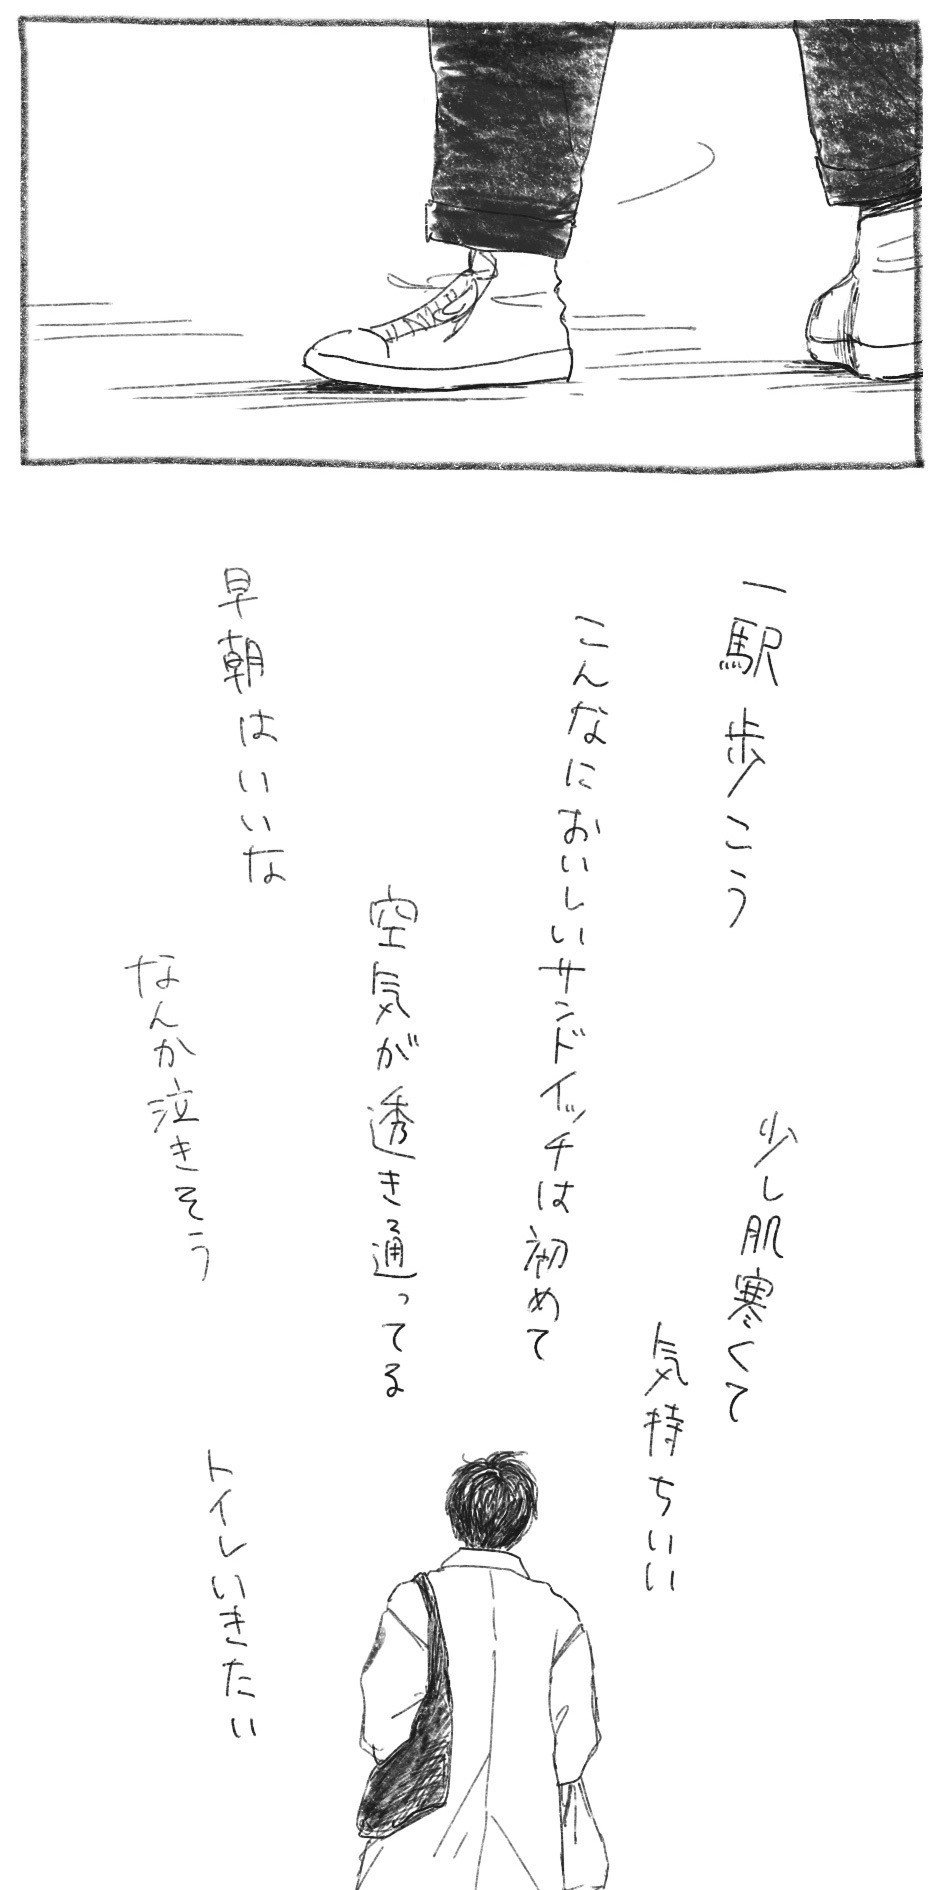 一駅歩こう
少し肌寒くて
気持ちいい
こんなにおいしいサンドイッチは初めて
空気が透き通ってる
早朝はいいな
なんか泣きそう
トイレいきたい